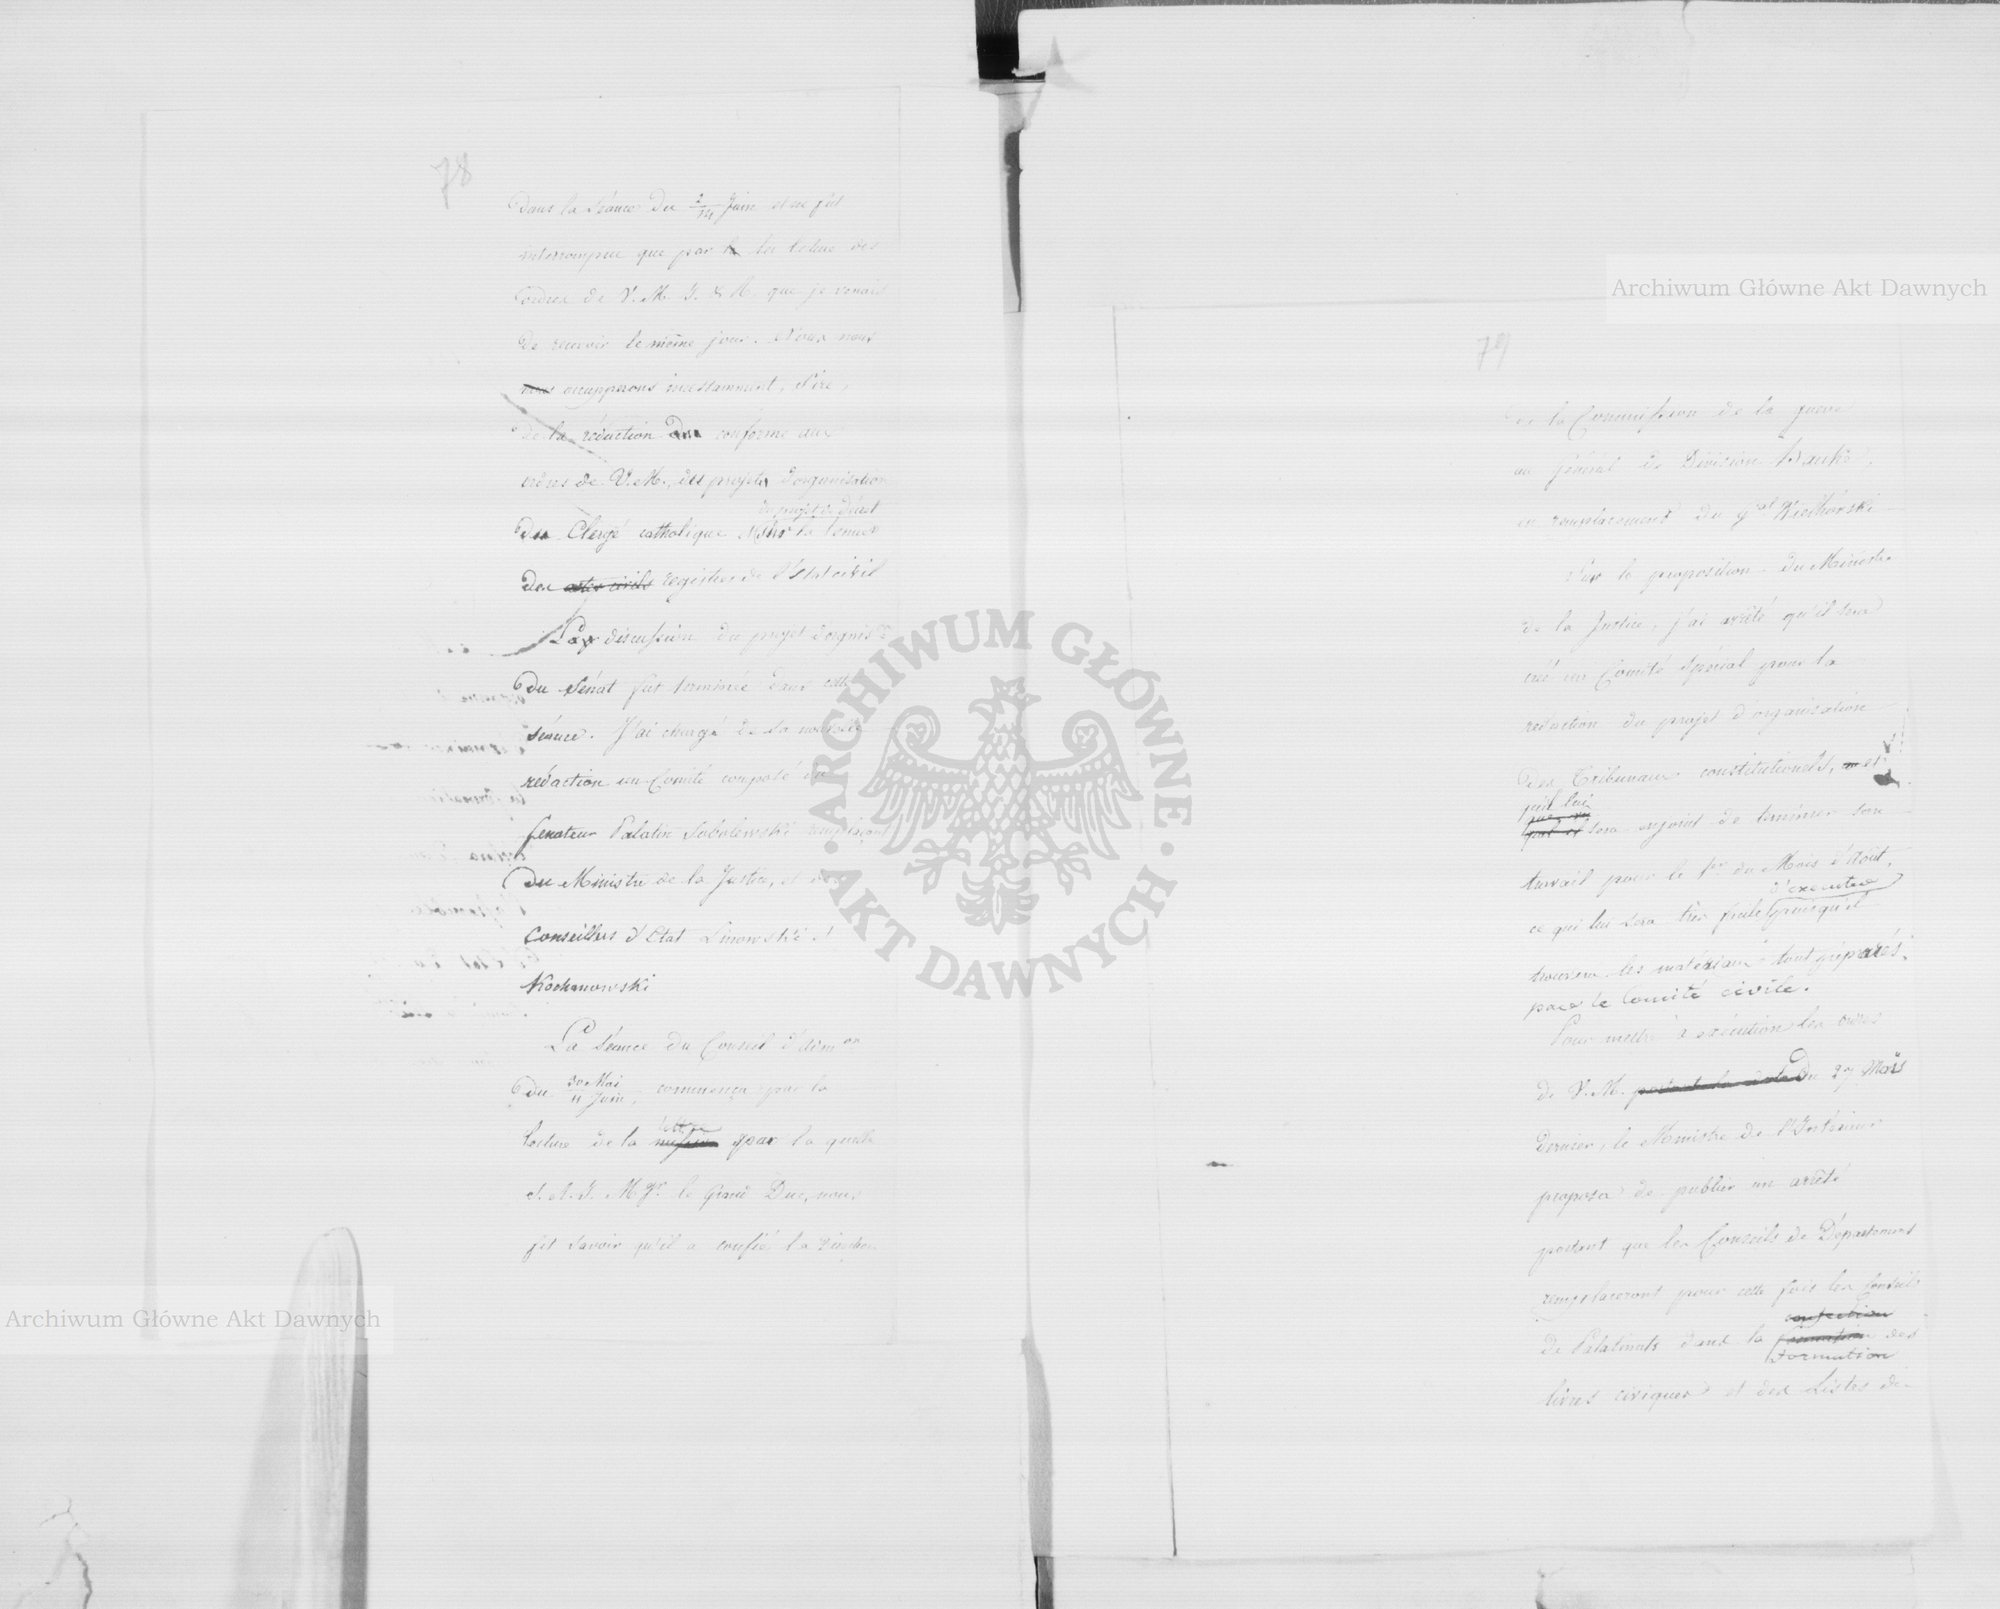 78
Dans la Séance du 2/14 Juin et ne fut
interrompue que par la lecture des
ordres de V. M. I. & R. que je venais
de recevoir le même jour. Nous nous
nous occupperons incessamment, Sire,
de la rédaction conforme aux
ordres de V. M., des projets d'organisation
du projet de décret
du Clergé catholique & sur la tenue
des actes civils registres de l'Etat civil
La discussion du projet d'organis.
du Sénat fut terminée dans cette
séance. J'ai chargé de la nouvelle
rédaction un Comité composé du
Senateur Palatin Sobolewski remplaçant
du Ministre de la Justice, et des
Conseillers d'Etat Linowski et
Kochanowski
La séance du Conseil d'Adm.on
du 30 Mai/11 Juin, commença par la
lettre
lecture de la par la quelle
S. A. I. Mgr. le Grand Duc, nous
fit savoir qu'il a confié la
79
de la Commission de la guerre
au Général de Division Hauke,
en remplacement du gral Wielhorski
Sur la proposition du Ministre
de la Justice, j'ai arrêté qu'il sera
créé un Comité spécial pour la
rédaction du projet d'organisation
des Tribunaux constitutionels, et
qu'il lui
sera enjoint de terminer son
travail pour le 1er du Mois d'Août,
d'executer
ce qui lui sera très facile puisqu'il
trouvera les matériaux tout préparés
par le Comité civile.
Pour mettre à exécution les ordres
de V. M. portant la date du 27 Mars
dernier, le Ministre de l'Intérieur
proposa de publier un arrêté
portant que les Conseils de Départements
remplaceront pour cette fois les Conseils
confection
de Palatinats dans la formation des
formation
livres civiques et des Listes de
Archiwum Główne Akt Dawnych
Archiwum Główne Akt Dawnych
ARCHIWUM GŁÓWNE · AKT DAWNYCH ·